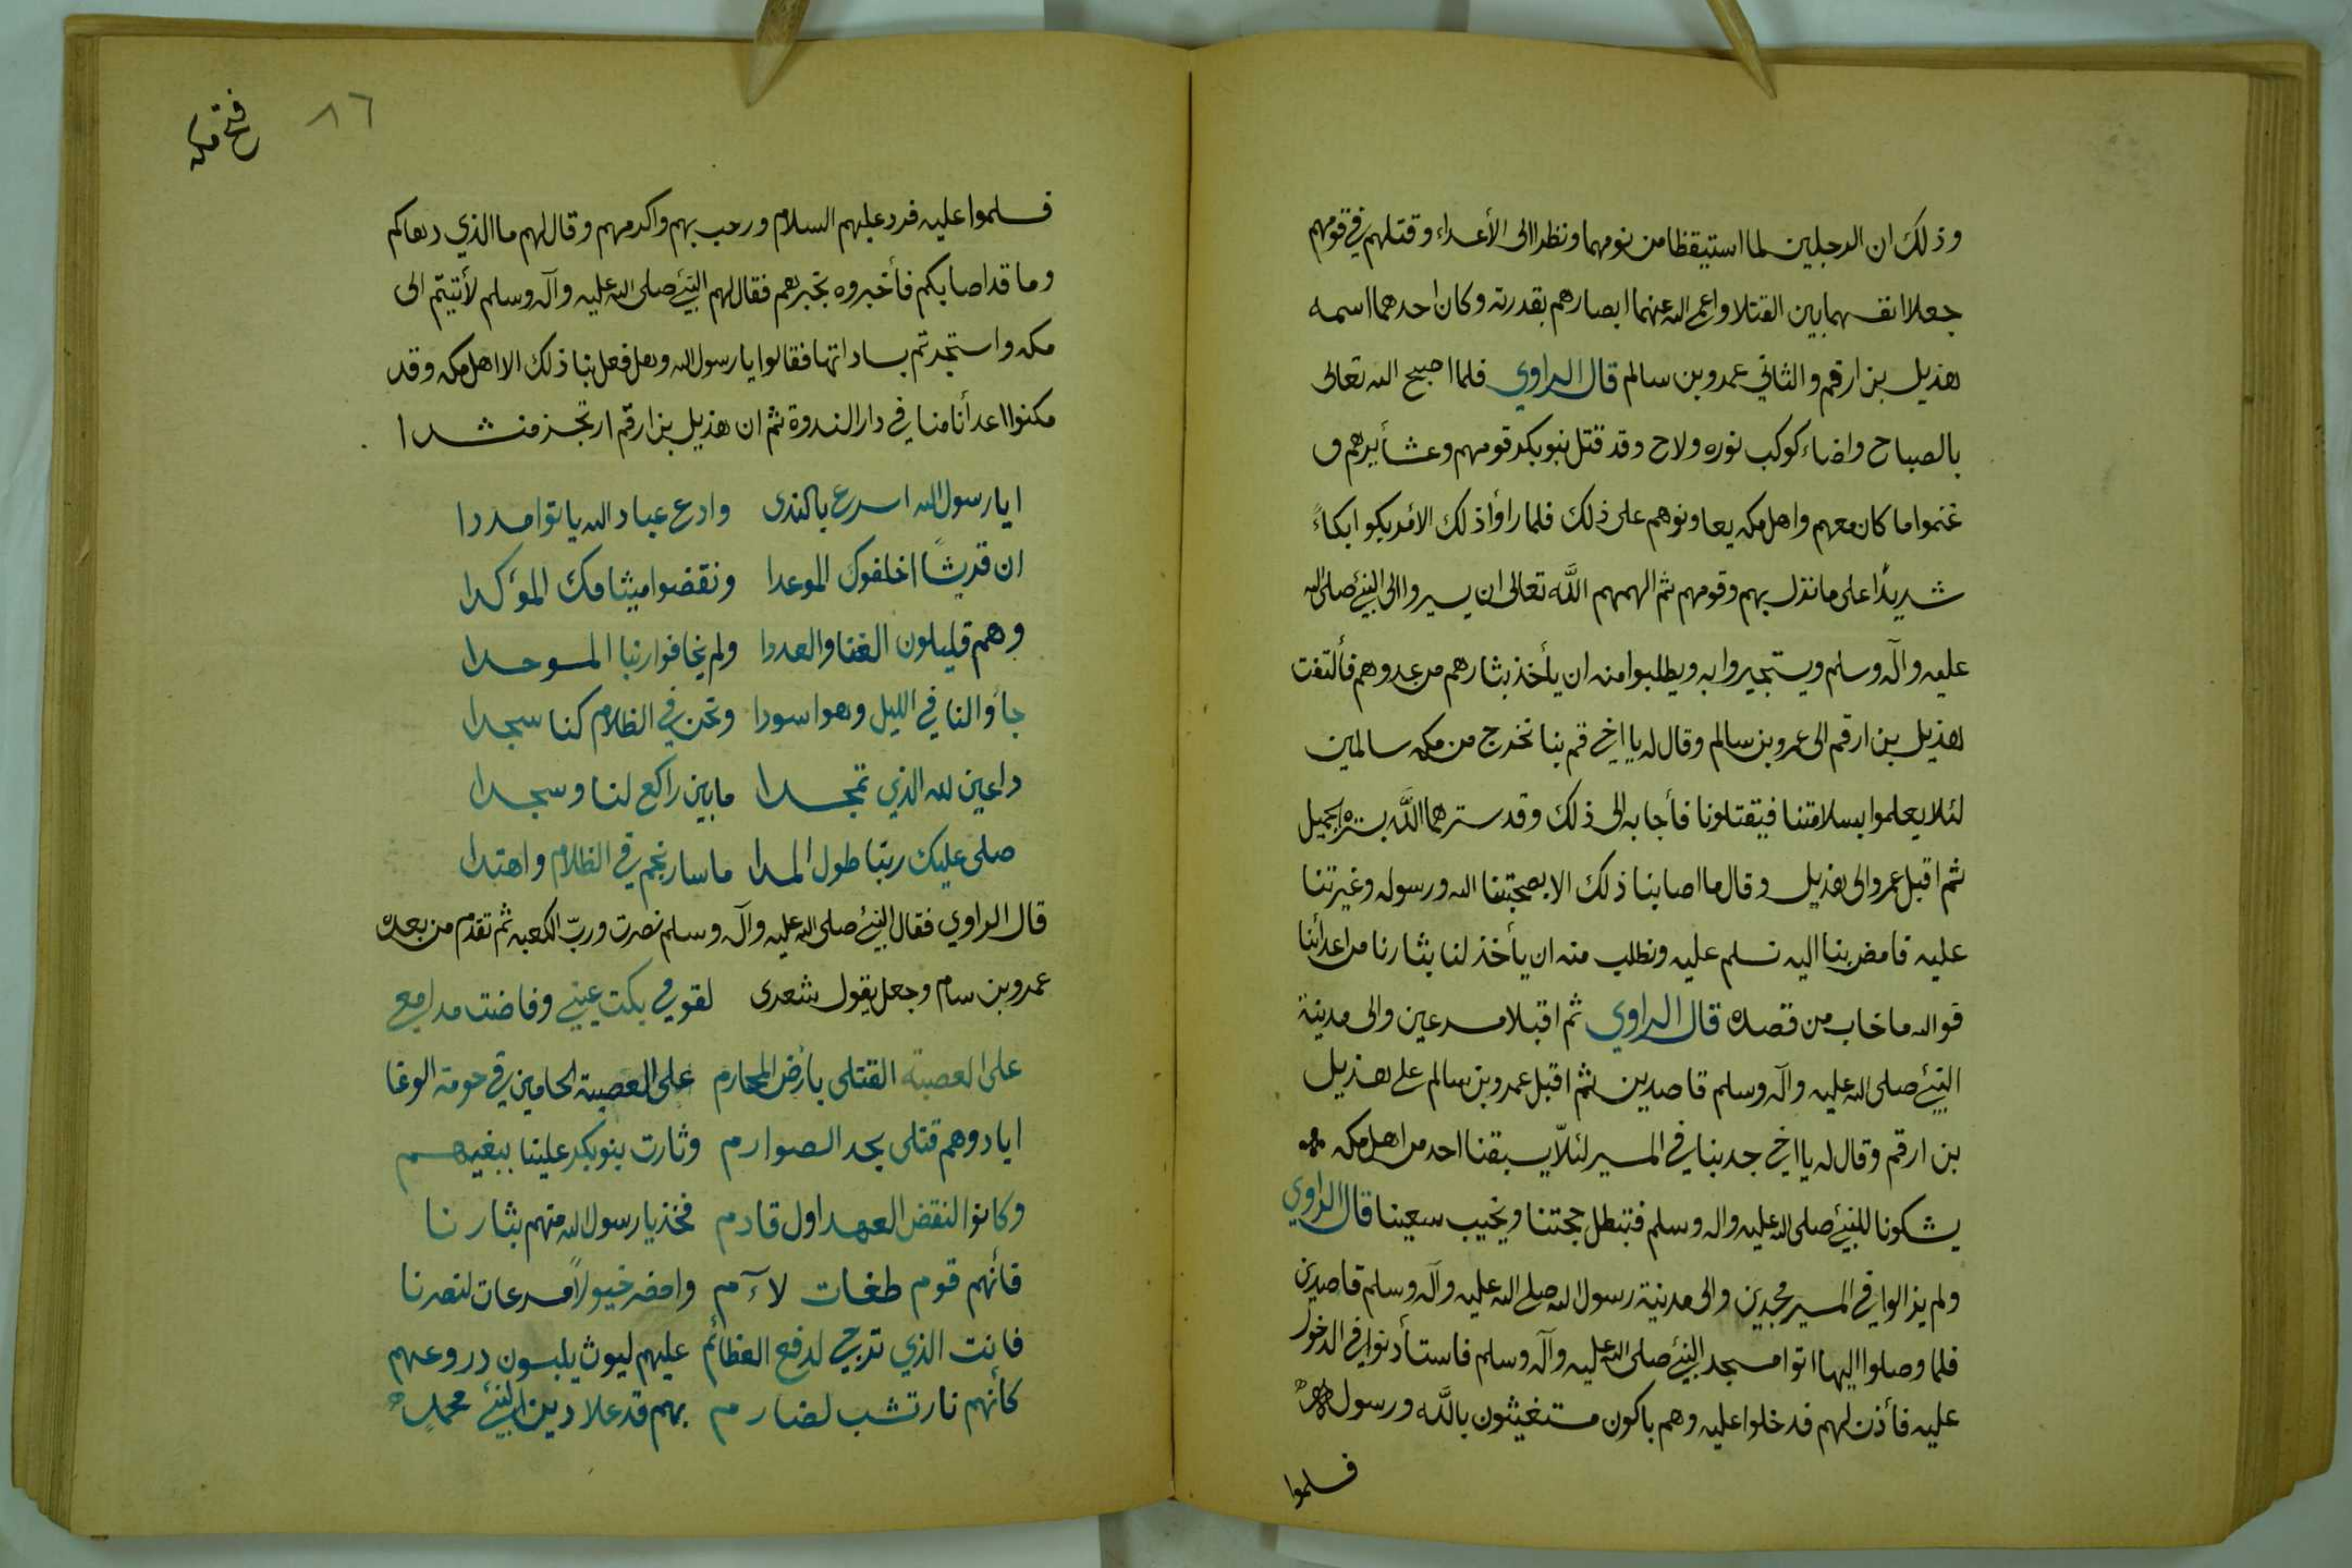 وذلك ان الرجلين لما استيقظا من نومهما ونظرا الى الأعداء وقتلهم في قومهم
جعلا انفسهما بين القتلا واعمى الله عنهما ابصارهم بقدرته وكان احدهما اسمه
هذيل بن ارقم والثاني عمرو بن سالم قال الراوي فلما اصبح الله تعالى
بالصباح واضاء كوكب نوره ولاح وقد قتل بنو بكر قومهم وعشأيرهم و
غنموا ما كان معهم واهل مكه يعاونوهم على ذلك فلما رأوا ذلك الأمر بكوا بكاءً
شديدًا على ما نزل بهم وقومهم ثم الهمهم اللَّه تعالى ان يسيروا الى النبيّ صلى الله
عليه وآله وسلم ويستجيروا به ويطلبوا منه ان يأخذ بثارهم من عدوهم فألتفت
هذيل بن ارقم الى عمرو بن سالم وقال له يا اخي قم بنا نخرج من مكه سالمين
لئلا يعلموا بسلامتنا فيقتلونا فأجابه الى ذلك وقد سترهما اللَّه بستره الجميل
ثم اقبل عمرو الى هذيل وقال ما اصابنا ذلك الا بمحبتنا الله ورسوله وغيرتنا
عليه فامض بنا اليه نسلم عليه ونطلب منه ان يأخذ لنا بثارنا من اعدائنا
فوالله ما خاب من قصده قال الراوي ثم اقبلا مسرعين والى مدينة
النبيّ صلى الله عليه وآله وسلم قاصدين ثم اقبل عمرو بن سالم على هذيل
بن ارقم وقال له يا اخي جد بنا في المسير لئلّا يسبقنا احد من اهل مكه
يشكونا للنبيّ صلى الله عليه واله وسلم فتبطل حجتنا ويخيب سعينا قال الراوي
ولم يزالوا في المسير مجدين والى مدينة رسول الله صلى الله عليه وآله وسلم قاصدين
فلما وصلوا اليها اتوا مسجد النبيّ صلى الله عليه وآله وسلم فاستأذنوا في الدخول
عليه فأذن لهم فدخلوا عليه وهم باكون مستغيثون باللَّه ورسوله
فسلموا
٨٦
فتح مكه
فسلموا عليه فرد عليهم السلام ورحب بهم واكرمهم وقال لهم ما الذي دهاكم
وما قد اصابكم فأخبروه بخبرهم فقال لهم النبيّ صلى الله عليه وآله وسلم لأتيتم الى
مكه واستجرتم بساداتها فقالوا يا رسول الله وهل فعل بنا ذلك الا اهل مكه وقد
مكنوا اعدأنا منا في دار الندوة ثم ان هذيل بن ارقم ارتجز منشدا
ايا رسول الله اسرع بالندى وادع عباد الله ياتوا مددا
ان قريشًا اخلفوك الموعدا ونقضوا ميثاقك المؤكدا
وهم قليلون الغنا والعددا ولم يخافوا ربنا الموحدا
جأوا لنا في الليل وهو اسودا ونحن في الظلام كنا سجدا
داعين لله الذي تمجدا ما بين راكع لنا وسجدا
صلى عليك ربنا طول المدا ما سار نجم في الظلام واهتدا
قال الراوي فقال النبيّ صلى الله عليه وآله وسلم نصرت وربّ الكعبه ثم تقدم من بعده
عمرو بن سام وجعل يقول شعرى لقومي بكت عيني وفاضت مدامعي
على العصبة القتلى بأرض المحارم على العصبة الحامين في حومة الوغا
ابادوهم قتلى بحد الصوارم وثارت بنو بكر علينا ببغيهم
وكانوا لنقض العهد اول قادم فخذ يا رسول الله منهم بثارنا
فأنهم قوم طغات لاَءم وامض خيولاً مسرعات لنصرنا
فانت الذي ترجى لدفع العظائم عليهم ليوث يلبسون دروعهم
كأنهم نار تشب لضارم بهم قد علا دين النبيّ محمدٍ